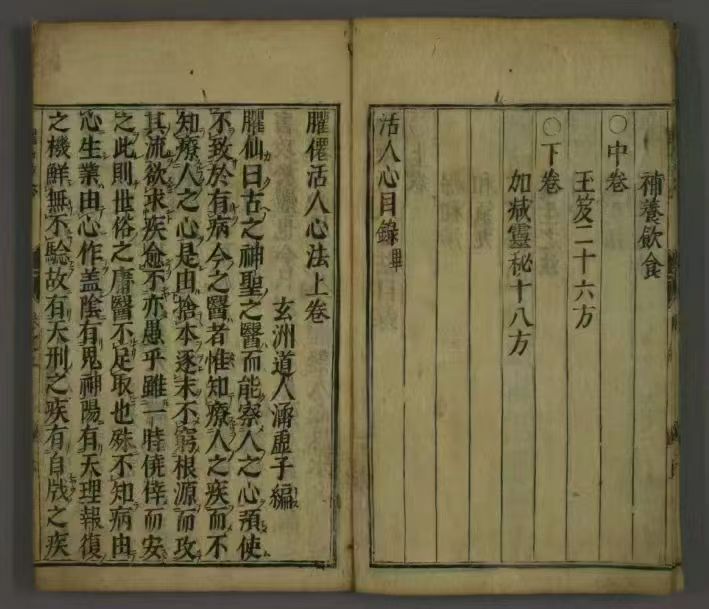 補養飲食
○中卷
玉笈二十六方
○下卷
加减靈秘十八方
活人心目錄畢
臞僊活人心法上卷
玄洲道人涵虛子編
臞仙曰古之神聖之醫而能察人之心預使
不致於有病今之醫者惟知療人之疾而不
知療人之心是由捨本逐末不窮根源而攻
其流欲求疾愈不亦愚乎雖一時僥倖而安
之此則世俗之庸醫不足取也殊不知病由
心生業由心作盖陰有鬼神陽有天理報復
之機鮮無不驗故有天刑之疾有自戕之疾